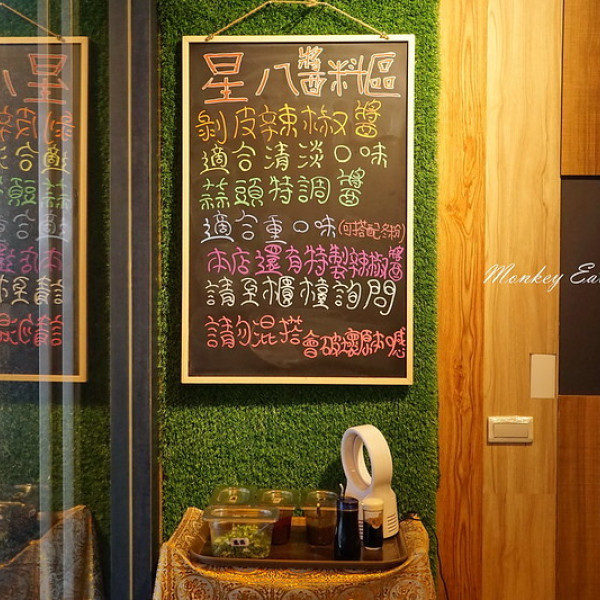 星八醬料區
剝皮辣椒醬
適合清淡口味
蒜頭特調醬
適合重口味(可搭配冬粉)
本店還有特製辣椒醬
請至櫃檯詢問
請勿混搭會破壞原味嘿
Monkey Eat